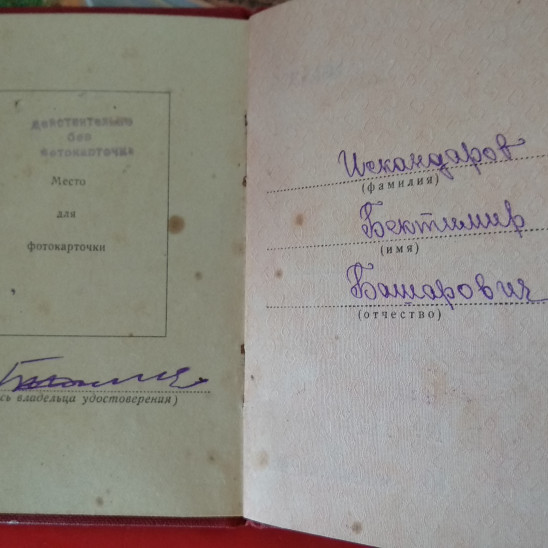 Действительно
без
фотокарточки
Место
для
фотокарточки
сь владельца удостоверения)
Искандаров
(фамилия)
Бектимир
(имя)
Башарович
(отчество)